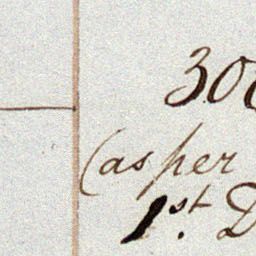 30
(as per
1st. D